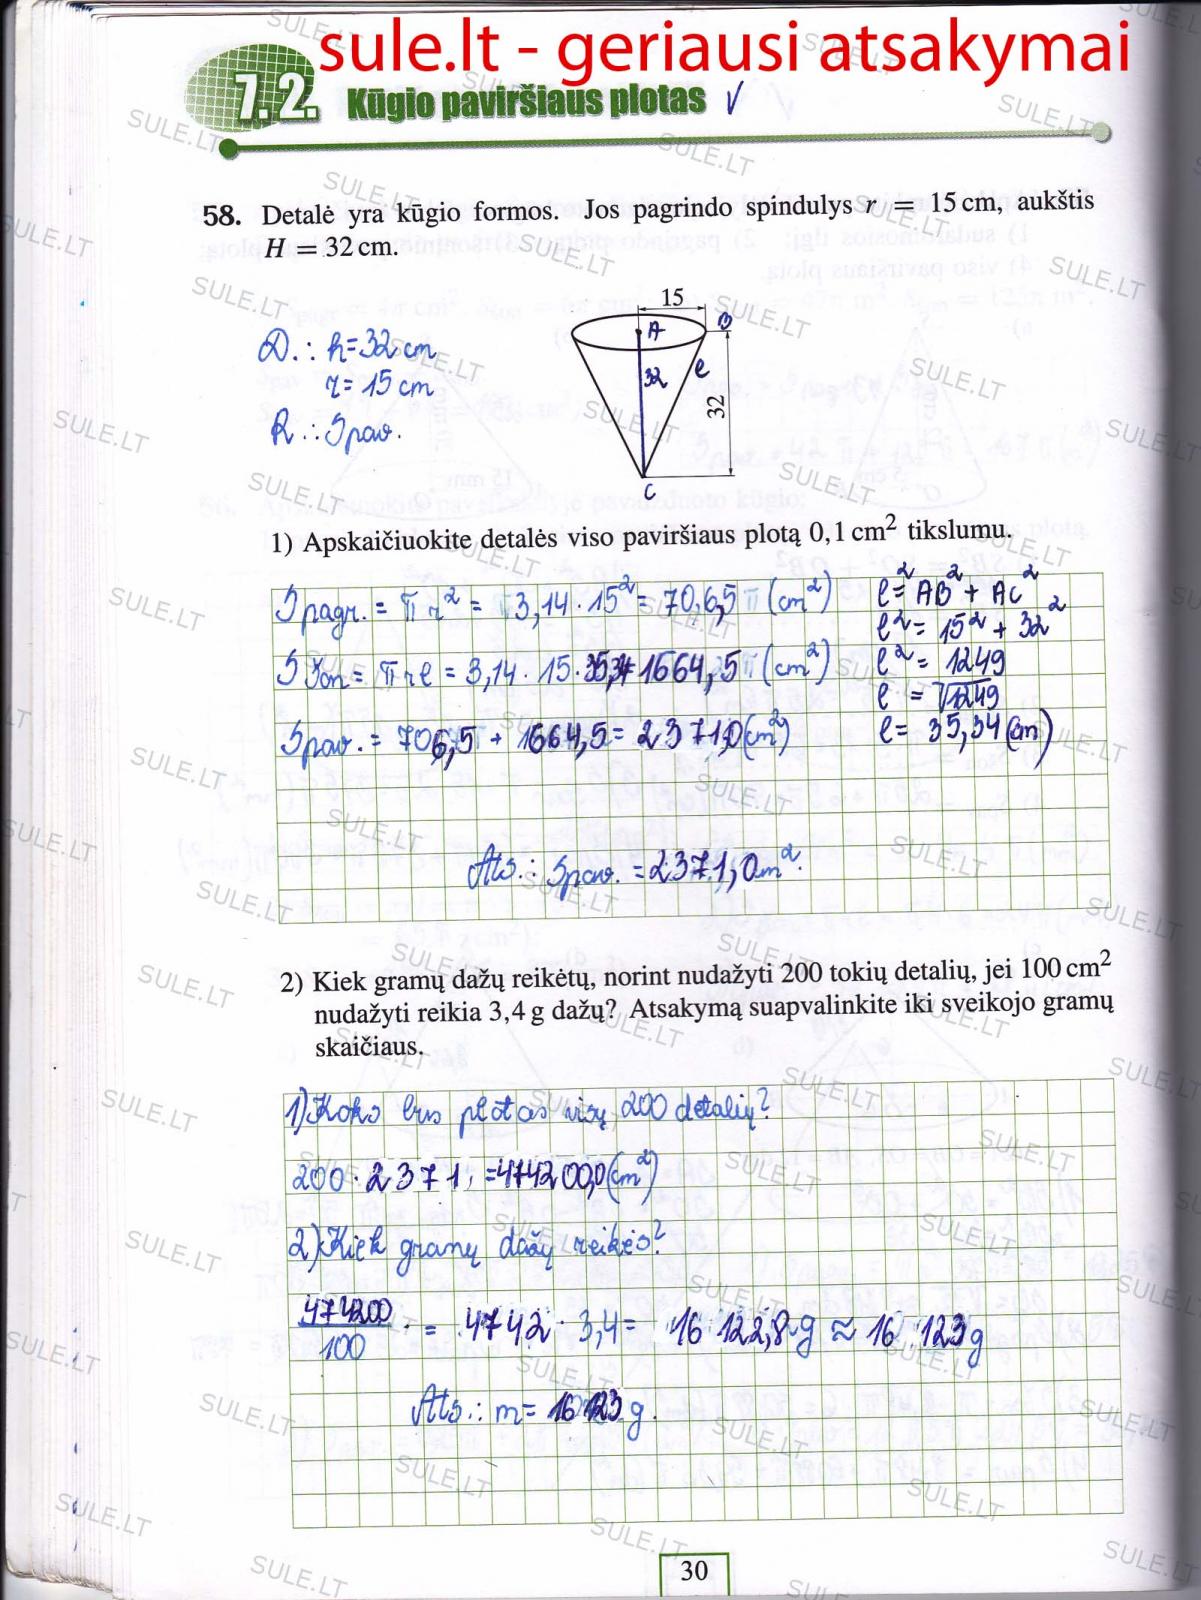 sule.lt - geriausi atsakymai
7.2. Kūgio paviršiaus plotas √
58. Detalė yra kūgio formos. Jos pagrindo spindulys r = 15 cm, aukštis
H = 32 cm.
15
A B
32 l
32
C
D.: h=32 cm
r = 15 cm
R.: Spav.
1) Apskaičiuokite detalės viso paviršiaus plotą 0,1 cm² tikslumu.
Spagr. = πr² = 3,14 · 15² = 706,5 (cm²)
l² = AB² + AC²
l² = 15² + 32²
Sšon = πrl = 3,14 · 15 · 35,34 = 1664,5 (cm²)
l² = 1249
l = √1249
Spav. = 706,5 + 1664,5 = 2371,0 (cm²)
l = 35,34 (cm)
Ats.: Spav. = 2371,0 m².
2) Kiek gramų dažų reikėtų, norint nudažyti 200 tokių detalių, jei 100 cm²
nudažyti reikia 3,4 g dažų? Atsakymą suapvalinkite iki sveikojo gramų
skaičiaus.
1) Koks bus plotas visų 200 detalių?
200 · 2371 = 474200,0 (cm²)
2) Kiek gramų dažų reikės?
474200/100 · = 4742 · 3,4 = 16 122,8 g ≈ 16 123 g
Ats.: m = 16 123 g.
30
SULE.LT